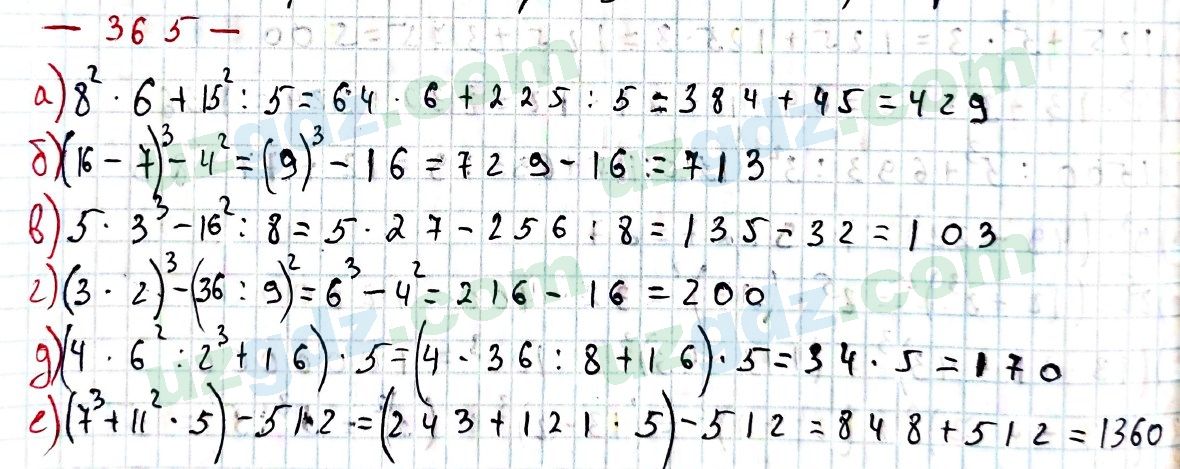 — 365 —
а) 8² · 6 + 15² : 5 = 64 · 6 + 225 : 5 = 384 + 45 = 429
б) (16 - 7)³ - 4² = (9)³ - 16 = 729 - 16 = 713
в) 5 · 3³ - 16² : 8 = 5 · 27 - 256 : 8 = 135 - 32 = 103
г) (3 · 2)³ - (36 : 9)² = 6³ - 4² = 216 - 16 = 200
д) (4 · 6² : 2³ + 16) · 5 = (4 · 36 : 8 + 16) · 5 = 34 · 5 = 170
е) (7³ + 11² · 5) - 512 = (243 + 121 · 5) - 512 = 848 + 512 = 1360
uzgdz.com
uzgdz.com
uzgdz.com
uzgdz.com